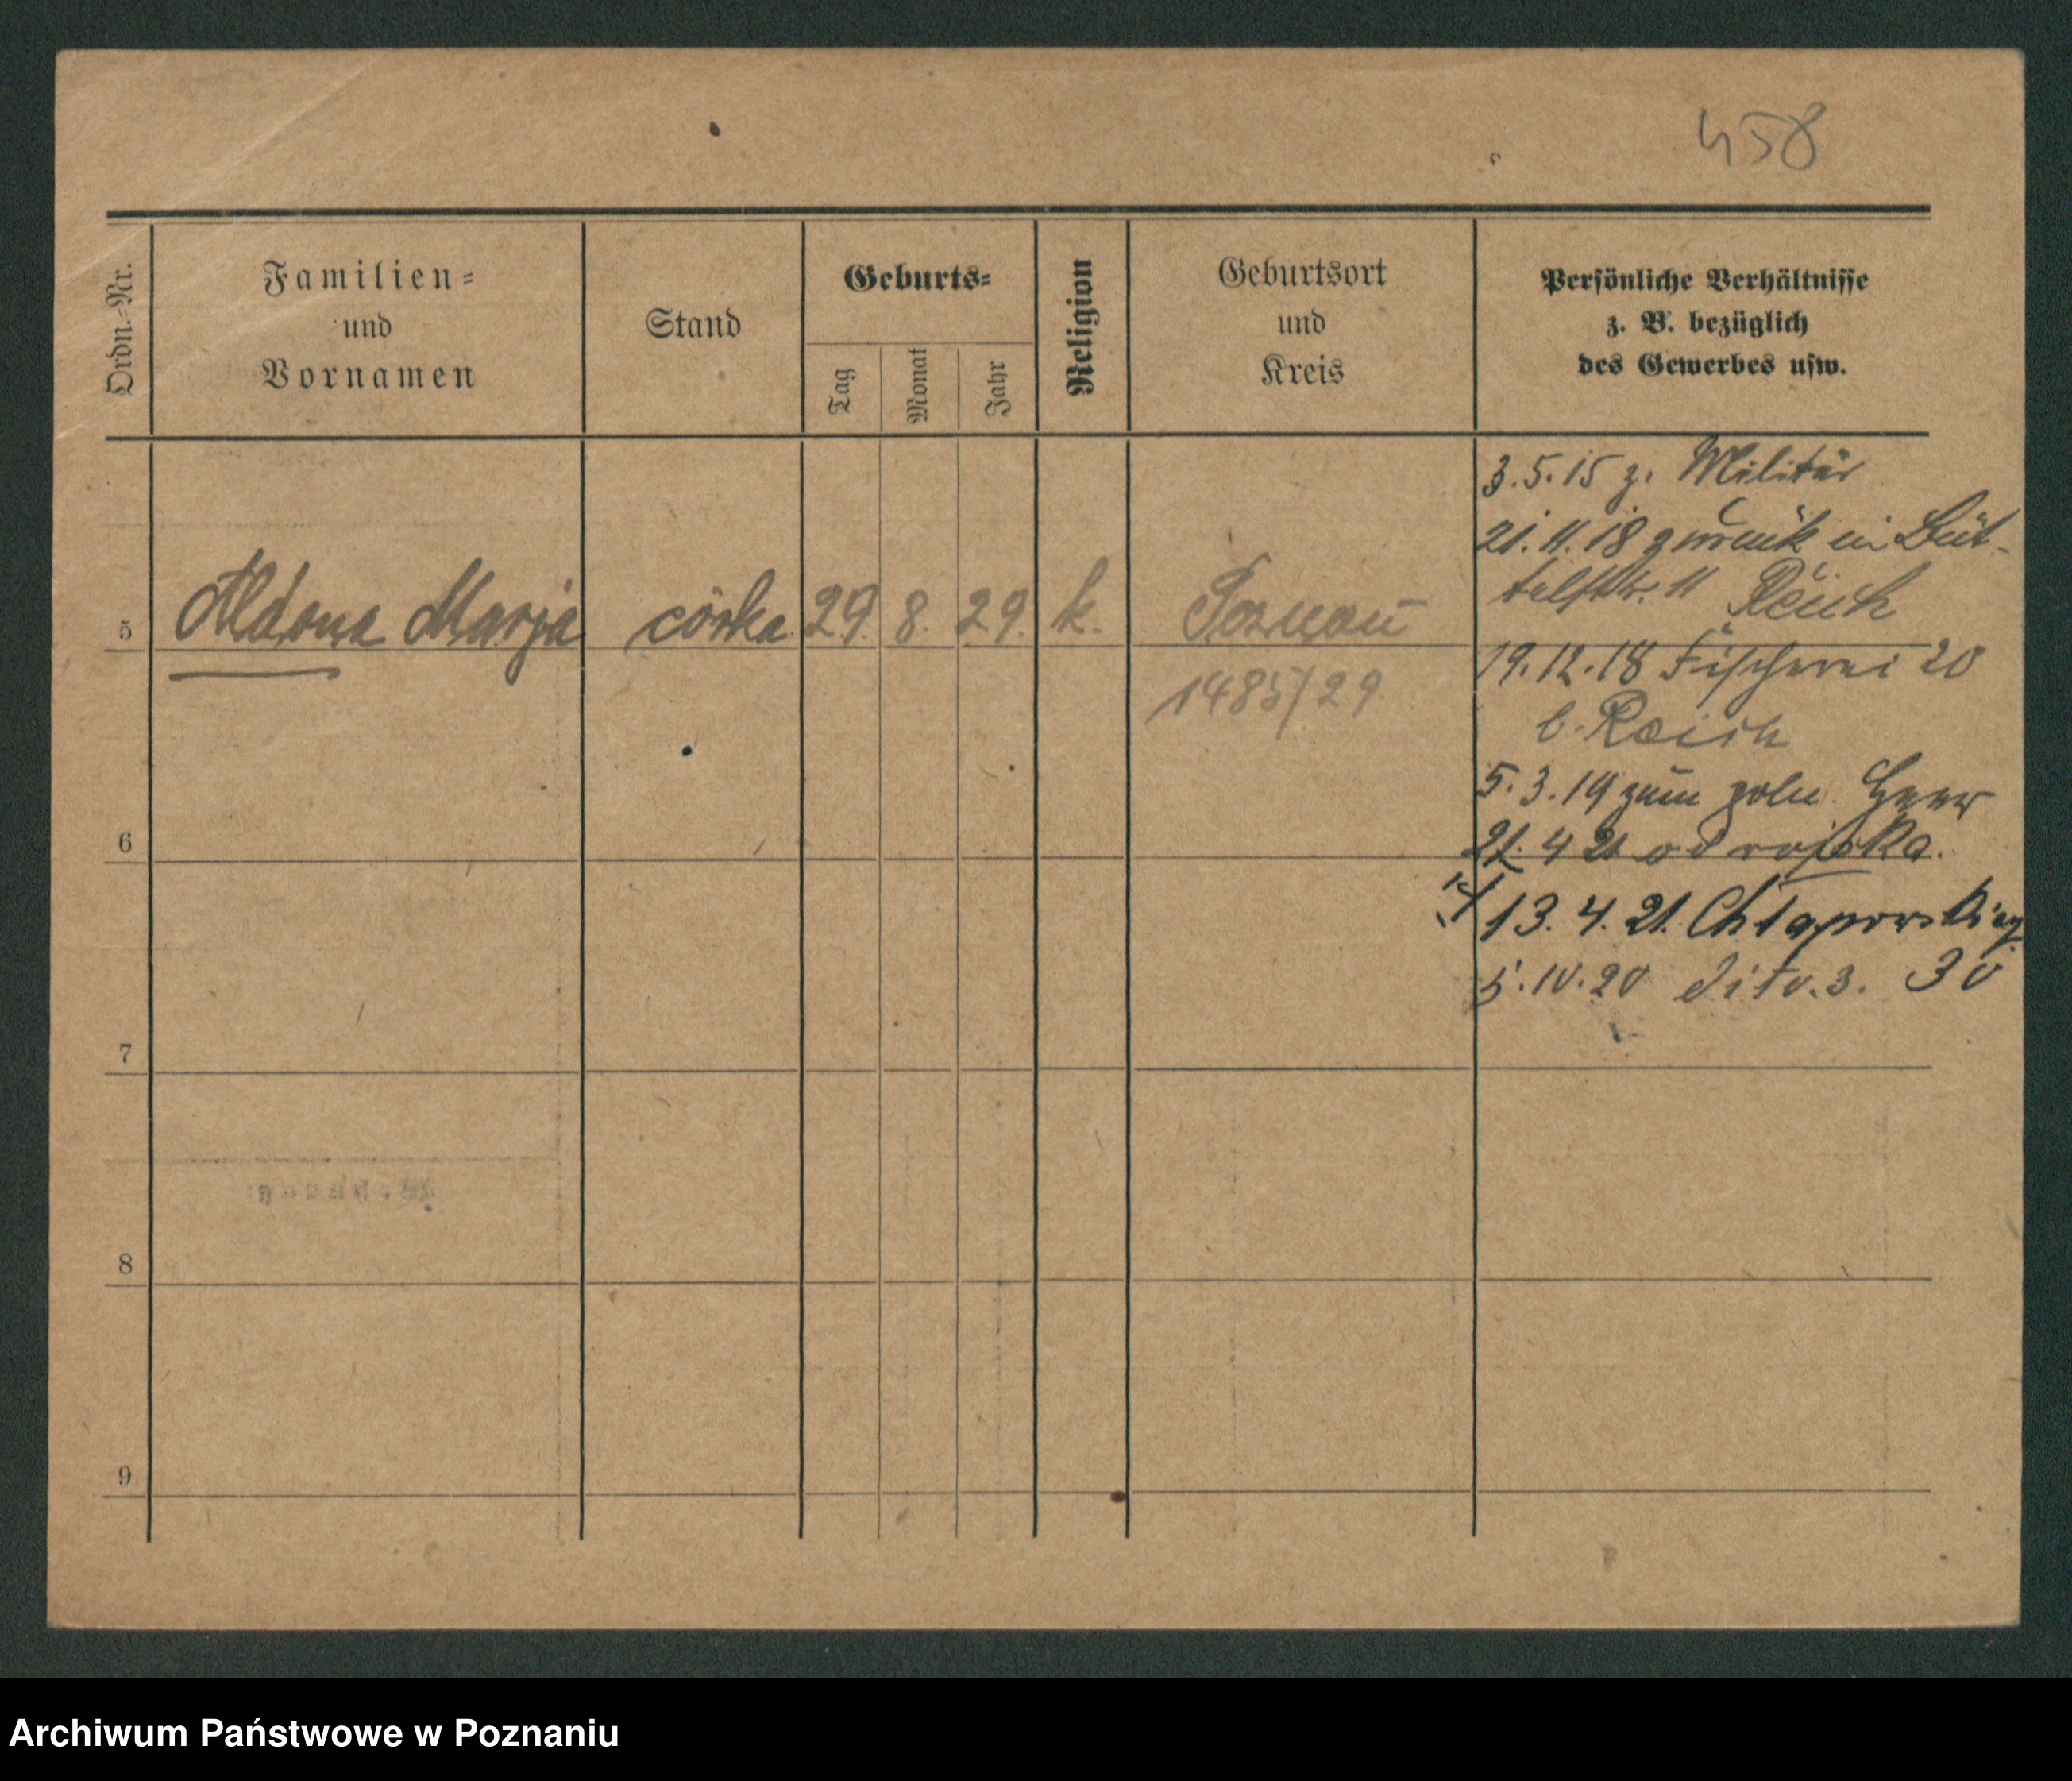 458
Ordn.-Nr.
Familien-
und
Vornamen
Stand
Geburts-
Tag
Monat
Jahr
Religion
Geburtsort
und
Kreis
Persönliche Verhältnisse
z. B. bezüglich
des Gewerbes usw.
3.5.15 z. Militär
21.11.18 zurück in Büt-
telstr. 11 Reich
5 Aldona Marja córka 29. 8. 29. k. Poznań
1485/29
19.12.18 Fischerei 20
b. Reich
5.3.19 zum poln. Heer
6
21. 4 21 od wojska.
13. 4. 21. Chłapowskieg
5.10.20 dito. 3. 30
7
8
9
Archiwum Państwowe w Poznaniu